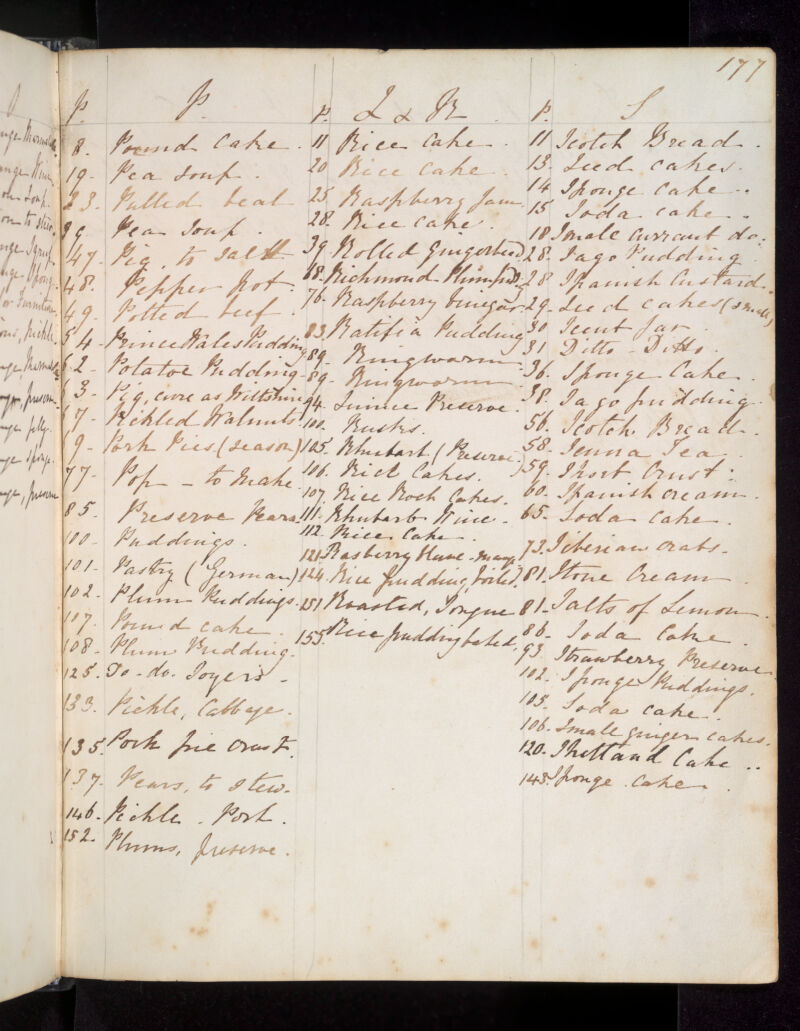 177
P. P.
8. Pound Cake.
19. Pea Soup.
23. Potted beat
29 Pea Soup.
47. Pig, to salt
48. Pepper Pot.
49. Potted beef.
54. Prince Wales Pudding
62. Potatoe Pudding
63. Pig, cure as Wiltshire
67. Pickled Walnuts.
69. Pork Pies (season)
77. Pop - to make
85. Preserve Pears
100. Puddings.
101. Pastry (German)
102. Plum Puddings.
107. Pound cake.
108. Plum Pudding.
125. Do - do. Soyers.
133. Pickle, Cabbage.
135. Pork pie crust.
137. Pears, to stew.
146. Pickle - Pork.
152. Plums, preserve.
P. Q & R.
11 Rice Cake.
20 Rice Cake.
25. Raspberry Jam
28. Rice Cake.
39. Rolled Gingerbread
68. Richmond
76. Raspberry Vinegar
83. Ratifia Pudding
89. Ringworm
89. Ringworm
94. Quince Preserve.
100. Rusks.
105. Rhubarb (Preserve)
106. Rice Cakes.
107. Rice Rock Cakes.
111. Rhubarb Wine.
112. Rice Cake.
121. Rasberry
124. Rice pudding, boiled.
151 Roasted, Tongue
155. Rice pudding baked.
P. S
11 Scotch Bread.
13. Seed cakes.
14 Sponge Cake.
15 Soda cake.
18 Small currant do:
28. Sago Pudding.
28 Spanish Custard.
29. Seed cakes (small)
30 Scent Jar.
31 Ditto - Ditto.
36. Sponge Cake.
38. Sago pudding.
56. Scotch Bread.
58. Senna Tea.
59. Short Crust.
60. Spanish cream.
65. Soda cake.
73. Siberian crabs.
81. Stone Cream.
81. Salts of Lemon.
86. Soda Cake.
93. Strawberry Preserve.
102. Sponge Puddings.
105. Soda cake.
106. Small ginger cakes.
120. Shetland Cake.
145. Sponge cake.